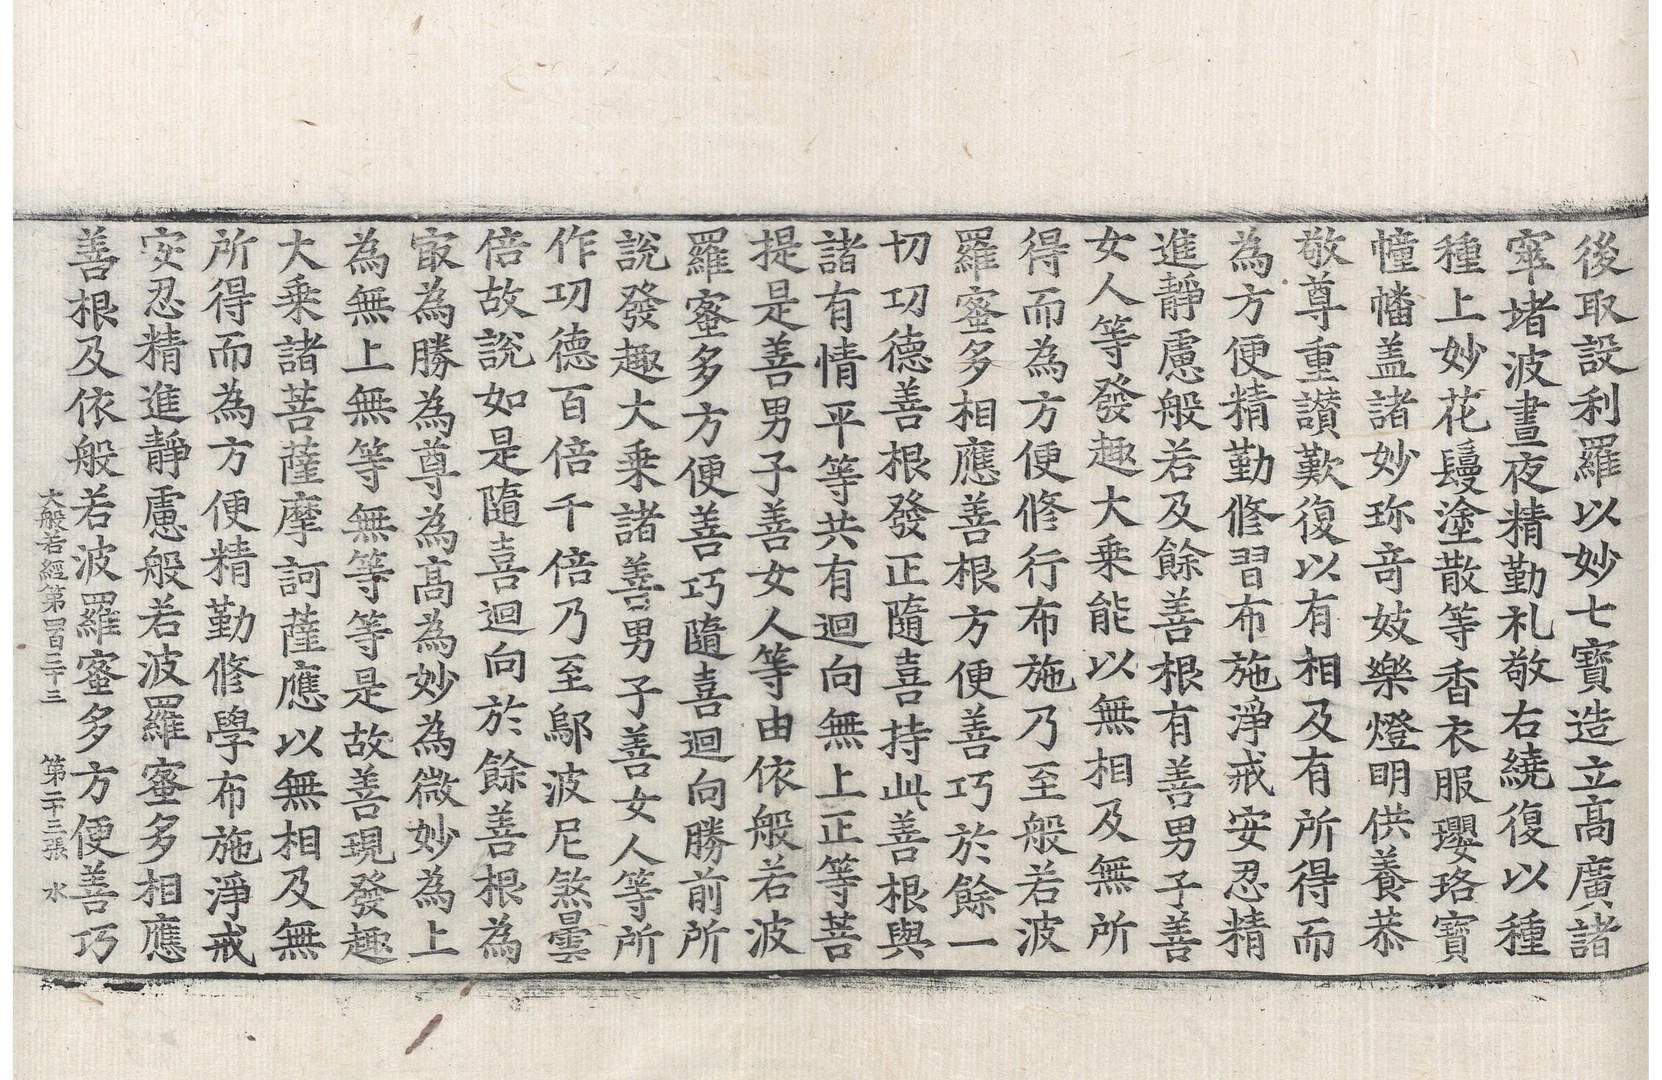 後取設利羅以妙七寶造立髙廣諸
窣堵波晝夜精勤礼敬右繞復以種
種上妙花鬘塗散等香衣服瓔珞寶
幢幡盖諸妙珎竒妓樂燈明供養恭
敬尊重讃歎復以有相及有所得而
為方便精勤修習布施淨戒安忍精
進靜慮般若及餘善根有善男子善
女人等發趣大乗能以無相及無所
得而為方便修行布施乃至般若波
羅蜜多相應善根方便善巧於餘一
切功德善根發正隨喜持此善根與
諸有情平等共有迴向無上正等菩
提是善男子善女人等由依般若波
羅蜜多方便善巧隨喜迴向勝前所
說發趣大乗諸善男子善女人等所
作功德百倍千倍乃至鄔波尼煞曇
倍故說如是隨喜迴向於餘善根為
㝡為勝為尊為髙為妙為微妙為上
為無上無等無等等是故善現發趣
大乗諸菩薩摩訶薩應以無相及無
所得而為方便精勤修學布施淨戒
安忍精進靜慮般若波羅蜜多相應
善根及依般若波羅蜜多方便善巧
大般若經第四百三十三 第二十三張 水